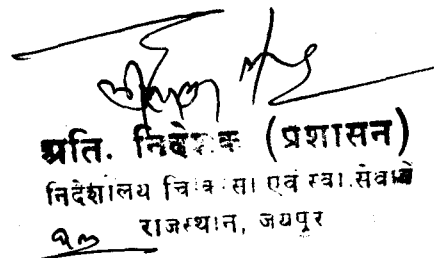 अति. निदेशक (प्रशासन)
निदेशालय चिकित्सा एवं स्वा. सेवायें
राजस्थान, जयपुर